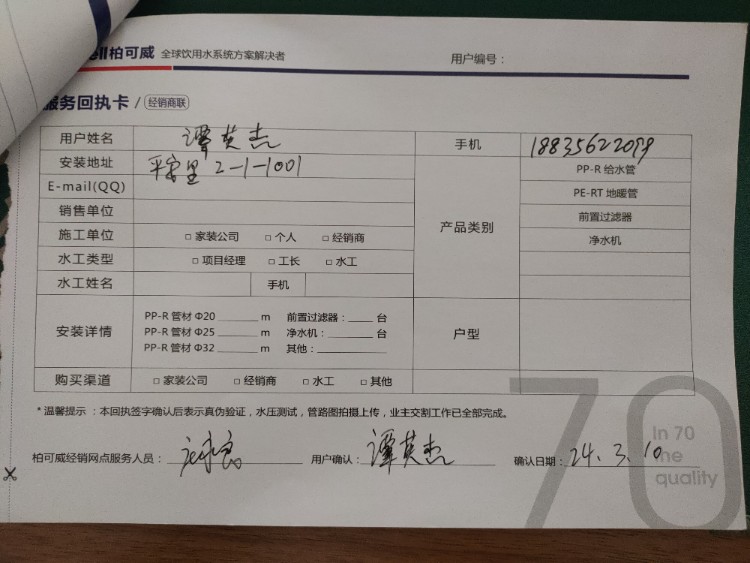 ell柏可威 全球饮用水系统方案解决者 用户编号：
服务回执卡 / 经销商联
用户姓名 谭英杰 手机 18835622099
安装地址 平安里 2-1-1001 PP-R 给水管
E-mail(QQ) PE-RT 地暖管
销售单位 产品类别 前置过滤器
施工单位 □ 家装公司 □ 个人 □ 经销商 净水机
水工类型 □ 项目经理 □ 工长 □ 水工
水工姓名 手机
安装详情 PP-R 管材 Φ20 ______ m 前置过滤器：____ 台 户型
PP-R 管材 Φ25 ______ m 净水机：____ 台
PP-R 管材 Φ32 ______ m 其他：__________
购买渠道 □ 家装公司 □ 经销商 □ 水工 □ 其他
* 温馨提示：本回执签字确认后表示真伪验证，水压测试，管路图拍摄上传，业主交割工作已全部完成。
70
In 70
me
quality
柏可威经销网点服务人员： 用户确认：谭英杰 确认日期：24.3.10